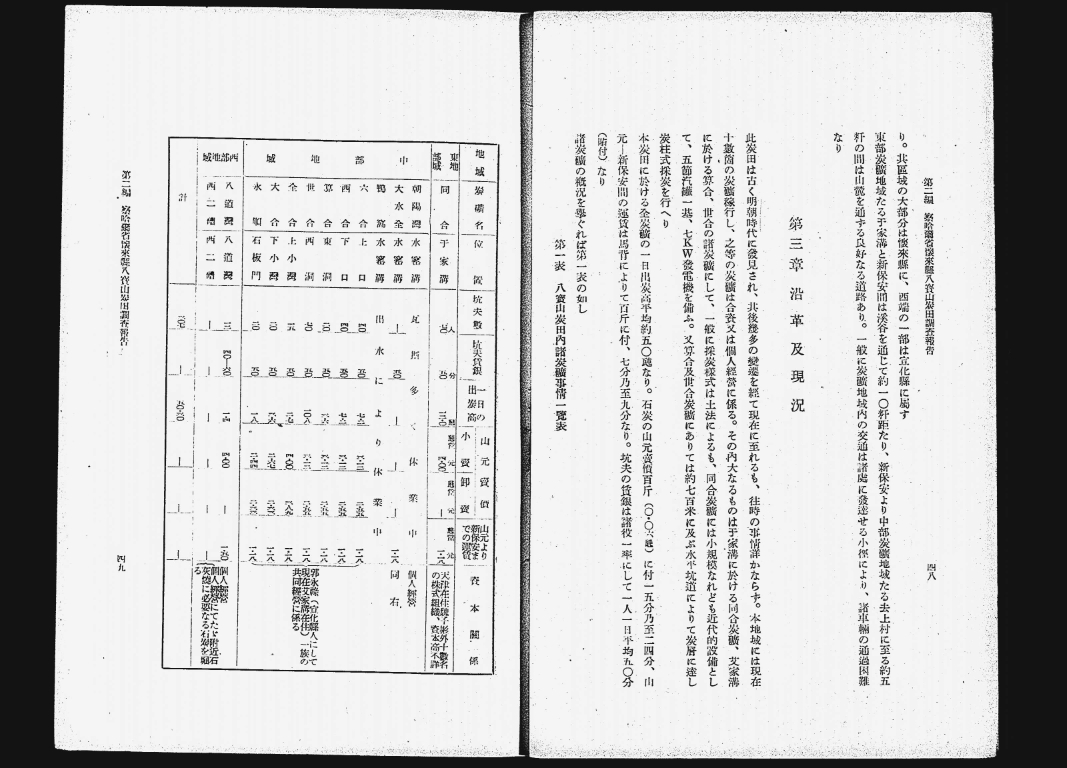 第二編　察哈爾省懷來縣八寳山炭田調査報告
四八
り。其區域の大部分は懷來縣に、西端の一部は宣化縣に屬す
東部炭礦地域たる于家溝と新保安間は溪谷を通じて約一〇粁距たり、新保安より中部炭礦地域たる去上村に至る約五
粁の間は山麓を通ずる良好なる道路あり。一般に炭礦地域内の交通は諸處に發達せる小徑により、諸車輛の通過困難
なり
第三章　沿革及現況
此炭田は古く明朝時代に發見され、其後幾多の變遷を經て現在に至れるも、往時の事情詳かならず。本地域には現在
十數箇の炭礦稼行し、之等の炭礦は合資又は個人經營に係る。その内大なるものは于家溝に於ける同合炭礦、艾家溝
に於ける算合、世合の諸炭礦にして、一般に採炭樣式は土法によるも、同合炭礦には小規模なれども近代的設備とし
て、五節汽罐一基、七KW發電機を備ふ。又算合及世合炭礦にありては約七百米に及ぶ水平坑道によりて炭層に達し
炭柱式採炭を行へり
本炭田に於ける全炭礦の一日出炭高平均約五〇瓲なり。石炭の山元賣價百斤（〇・〇六瓲）に付一五分乃至二四分、山
元―新保安間の運賃は馬背によりて百斤に付、七分乃至九分なり。坑夫の賃銀は諸役一率にして一人一日平均五〇分
（賄付）なり
諸炭礦の概況を擧ぐれば第一表の如し
第一表　八寳山炭田内諸炭礦事情一覽表
地域　炭礦名　位置　坑夫數　坑夫賃銀　一日の出炭高　山元賣價　小賣　卸賣　山元より新保安までの運賃　資本關係
東部地域　同合　于家溝
天津在住魏子彬外十數名の株式組織、資本高不詳
中部地域　朝陽灣　水窑溝　瓦斯多く休業中　個人經營
大水全　水窑溝　同右
鴨窩　水窑溝　出水により休業中
六合　上口
西合　下口
算合　東洞
世合　西洞
全合　上小灣
大合　下小灣
永順　石板門
郭永隆（宣化縣人にして現在艾家溝在住）一族の共同經營に係る
西部地域　八道灣　八道灣　個人經營
西二壋　西二壋　個人經營にてたゞ附近石灰燒に必要なる石炭を掘る
計
第二編　察哈爾省懷來縣八寳山炭田調査報告
四九